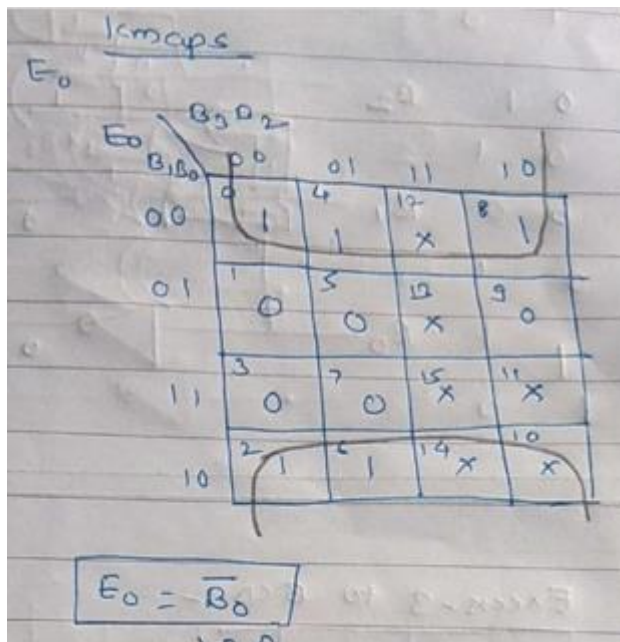 Kmaps
E0
B3B2
E0
B1B0
00 01 11 10
00
0 1
4 1
12 x
8 1
01
1 0
5 0
13 x
9 0
11
3 0
7 0
15 x
11 x
10
2 1
6 1
14 x
10 x
E0 = B̅0